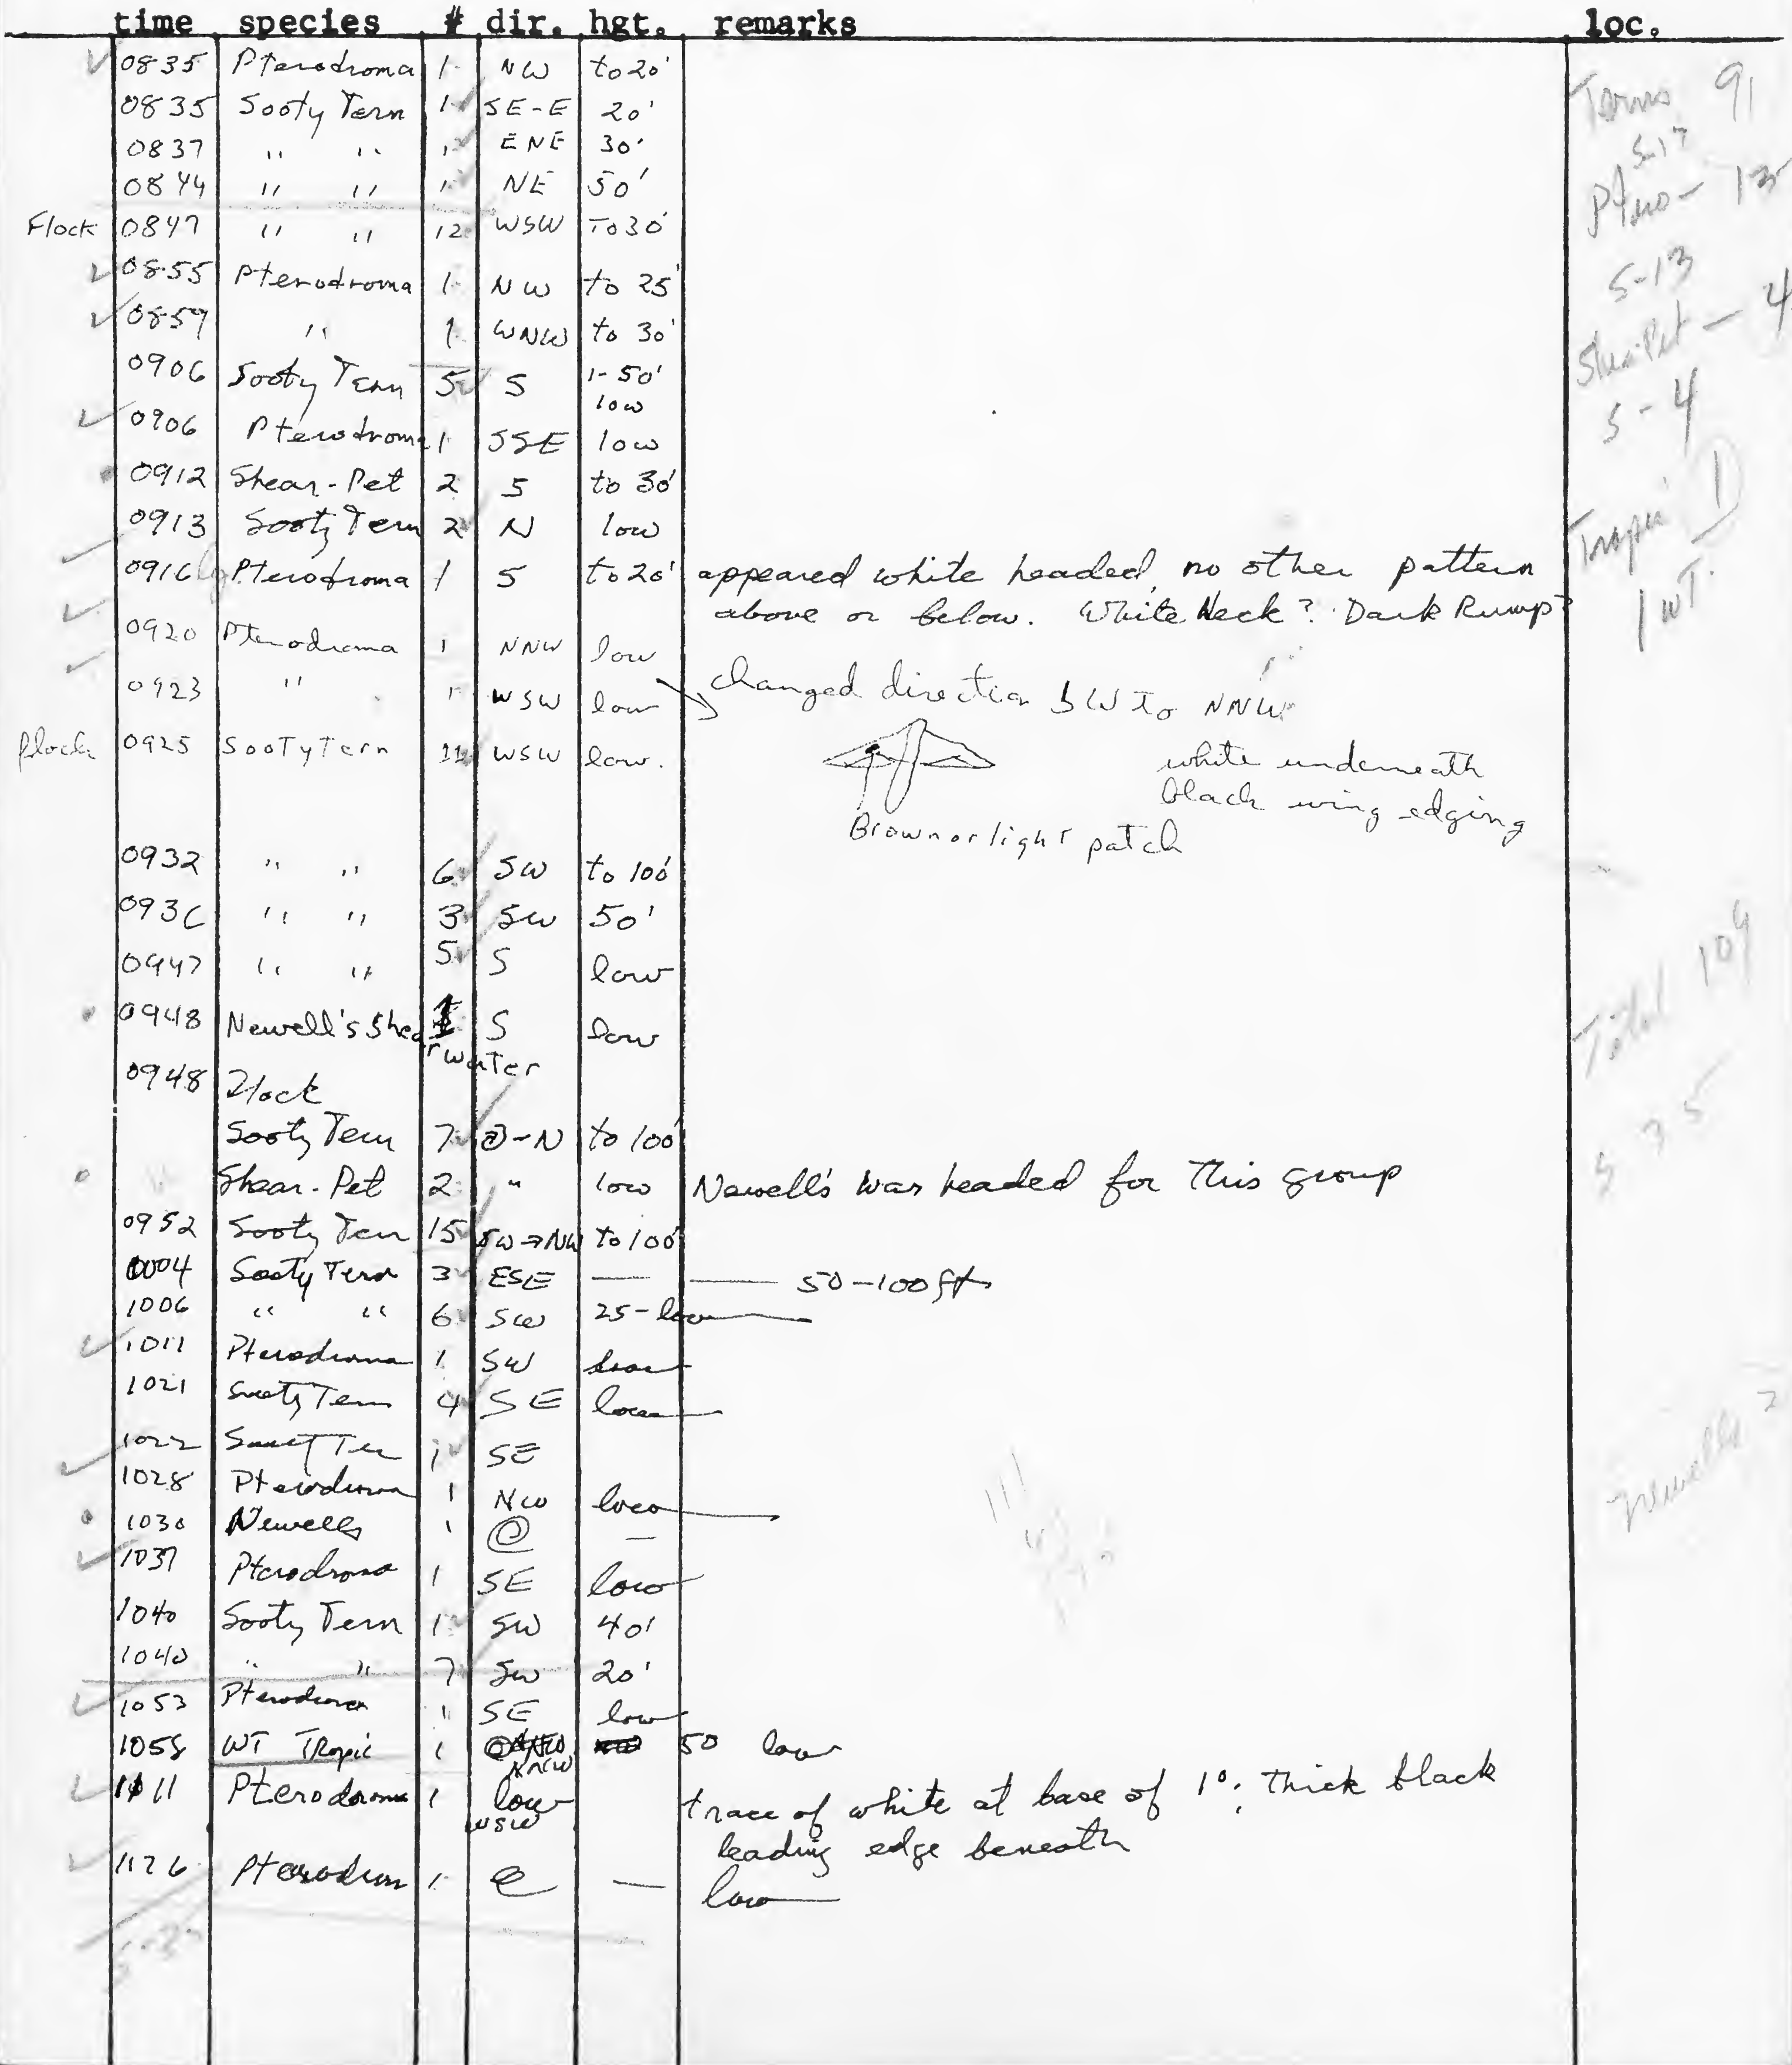 time species # dir. hgt. remarks loc.
0835 Pterodroma 1 NW to 20'
0835 Sooty Tern 1 SE-E 20'
0837 " " 1 ENE 30'
0844 " " 1 NE 50'
Flock 0847 " " 12 WSW To 30'
0855 Pterodroma 1 NW to 25'
0859 " 1 WNW to 30'
0906 Sooty Tern 5 S 1-50'
low
0906 Pterodroma 1 SSE low
0912 Shear-Pet 2 S to 30'
0913 Sooty Tern 2 N low
0916 Pterodroma 1 S to 20' appeared white headed, no other pattern
above or below. White Neck? Dark Rump?
0920 Pterodroma 1 NNW low
0923 " 1 WSW low changed direction SW to NNW
Flock 0925 Sooty Tern 11 WSW low.
white underneath
black wing edging
Brown or light patch
0932 " " 6 SW to 100'
0936 " " 3 SW 50'
0947 " " 5 S low
0948 Newell's Shearwater 1 S low
0948 Flock
Sooty Tern 7 @-N to 100'
Shear-Pet 2 " low Newell's was headed for this group
0952 Sooty Tern 15 SW→NW to 100'
1004 Sooty Tern 3 ESE — — 50-100 ft
1006 " " 6 SW 25-low
1011 Pterodroma 1 SW low
1021 Sooty Tern 4 SE low
1022 Sooty Ter 1 SE
1028 Pterodroma 1 NW low
1030 Newells 1 @ —
1037 Pterodroma 1 SE low
1040 Sooty Tern 1 SW 40'
1040 " " 7 SW 20'
1053 Pterodroma 1 SE low
1058 WT Tropic 1 NNW 50 low
1111 Pterodroma 1 low
WSW
trace of white at base of 1°; thick black
leading edge beneath
1126 Pterodrom 1 @ — low
Terns 91
5-17
Ptero- 13
5-13
Shear-Pet — 4
5-4
Tropic 1
1 WT.
Total 109
5 35
Newells 2